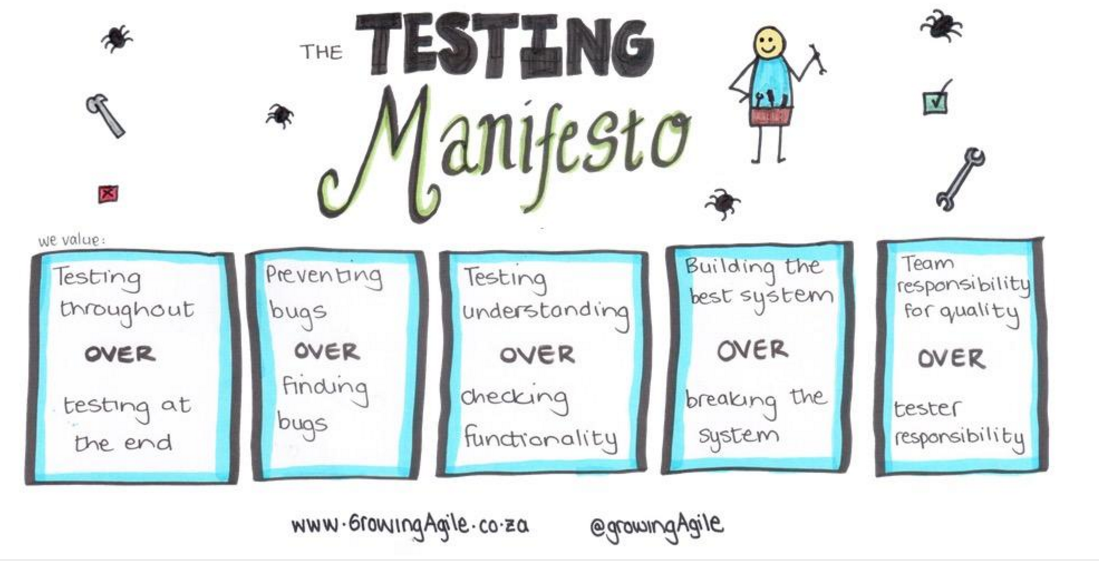 THE TESTING
Manifesto
we value:
Testing
throughout
OVER
testing at
the end
Preventing
bugs
OVER
finding
bugs
Testing
understanding
OVER
checking
functionality
Building the
best system
OVER
breaking the
system
Team
responsibility
for quality
OVER
tester
responsibility
www.GrowingAgile.co.za @growingAgile